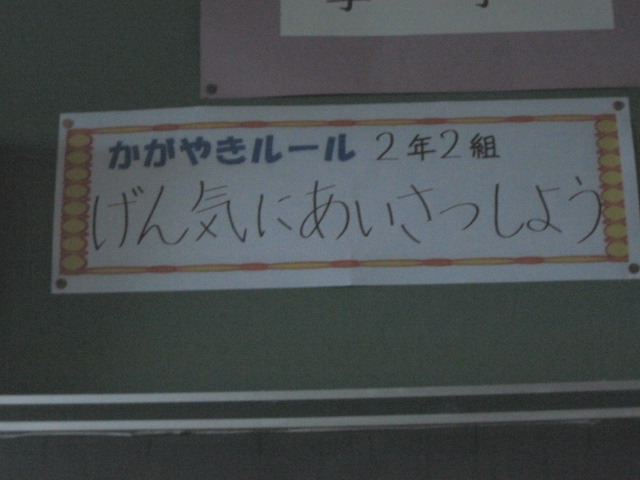 かがやきルール 2年2組
げん気にあいさつしよう